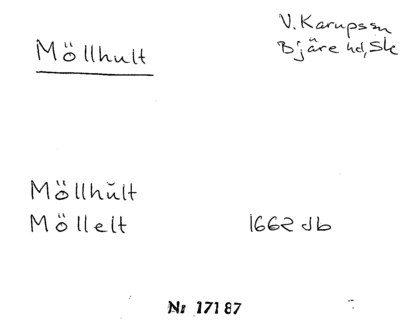 Möllhult
V. Karups sn
Bjäre hd, Sk
Möllhŭlt
Möllelt 1662 db
Nr 17187